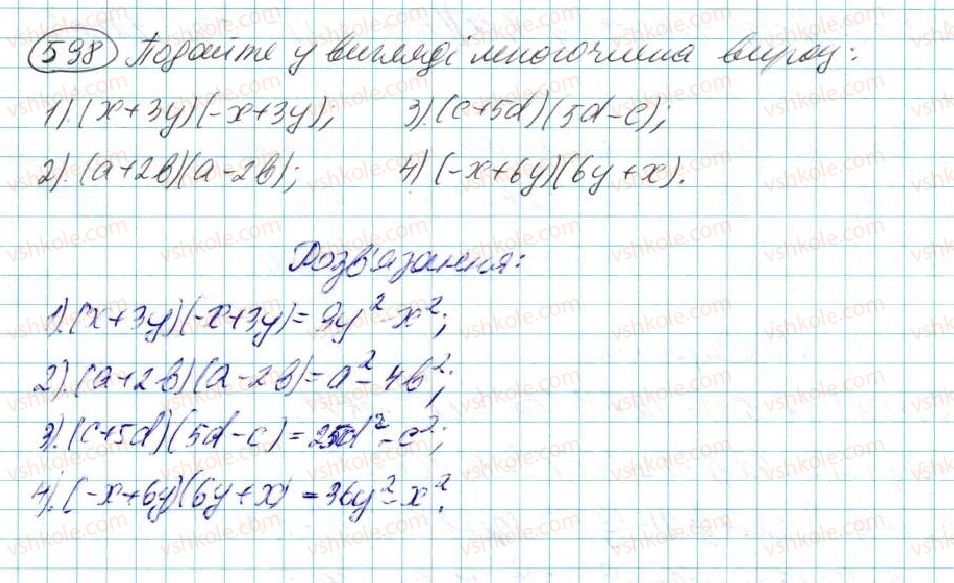 598 Подайте у вигляді многочлена вираз:
1).(x+3y)(-x+3y); 3).(c+5d)(5d-c);
2).(a+2b)(a-2b); 4)(-x+6y)(6y+x).
Розв'язання:
1).(x+3y)(-x+3y)=9y²-x²;
2).(a+2b)(a-2b)=a²-4b²;
3).(c+5d)(5d-c)=25d²-c²;
4).(-x+6y)(6y+x)=36y²-x².
vshkole.com